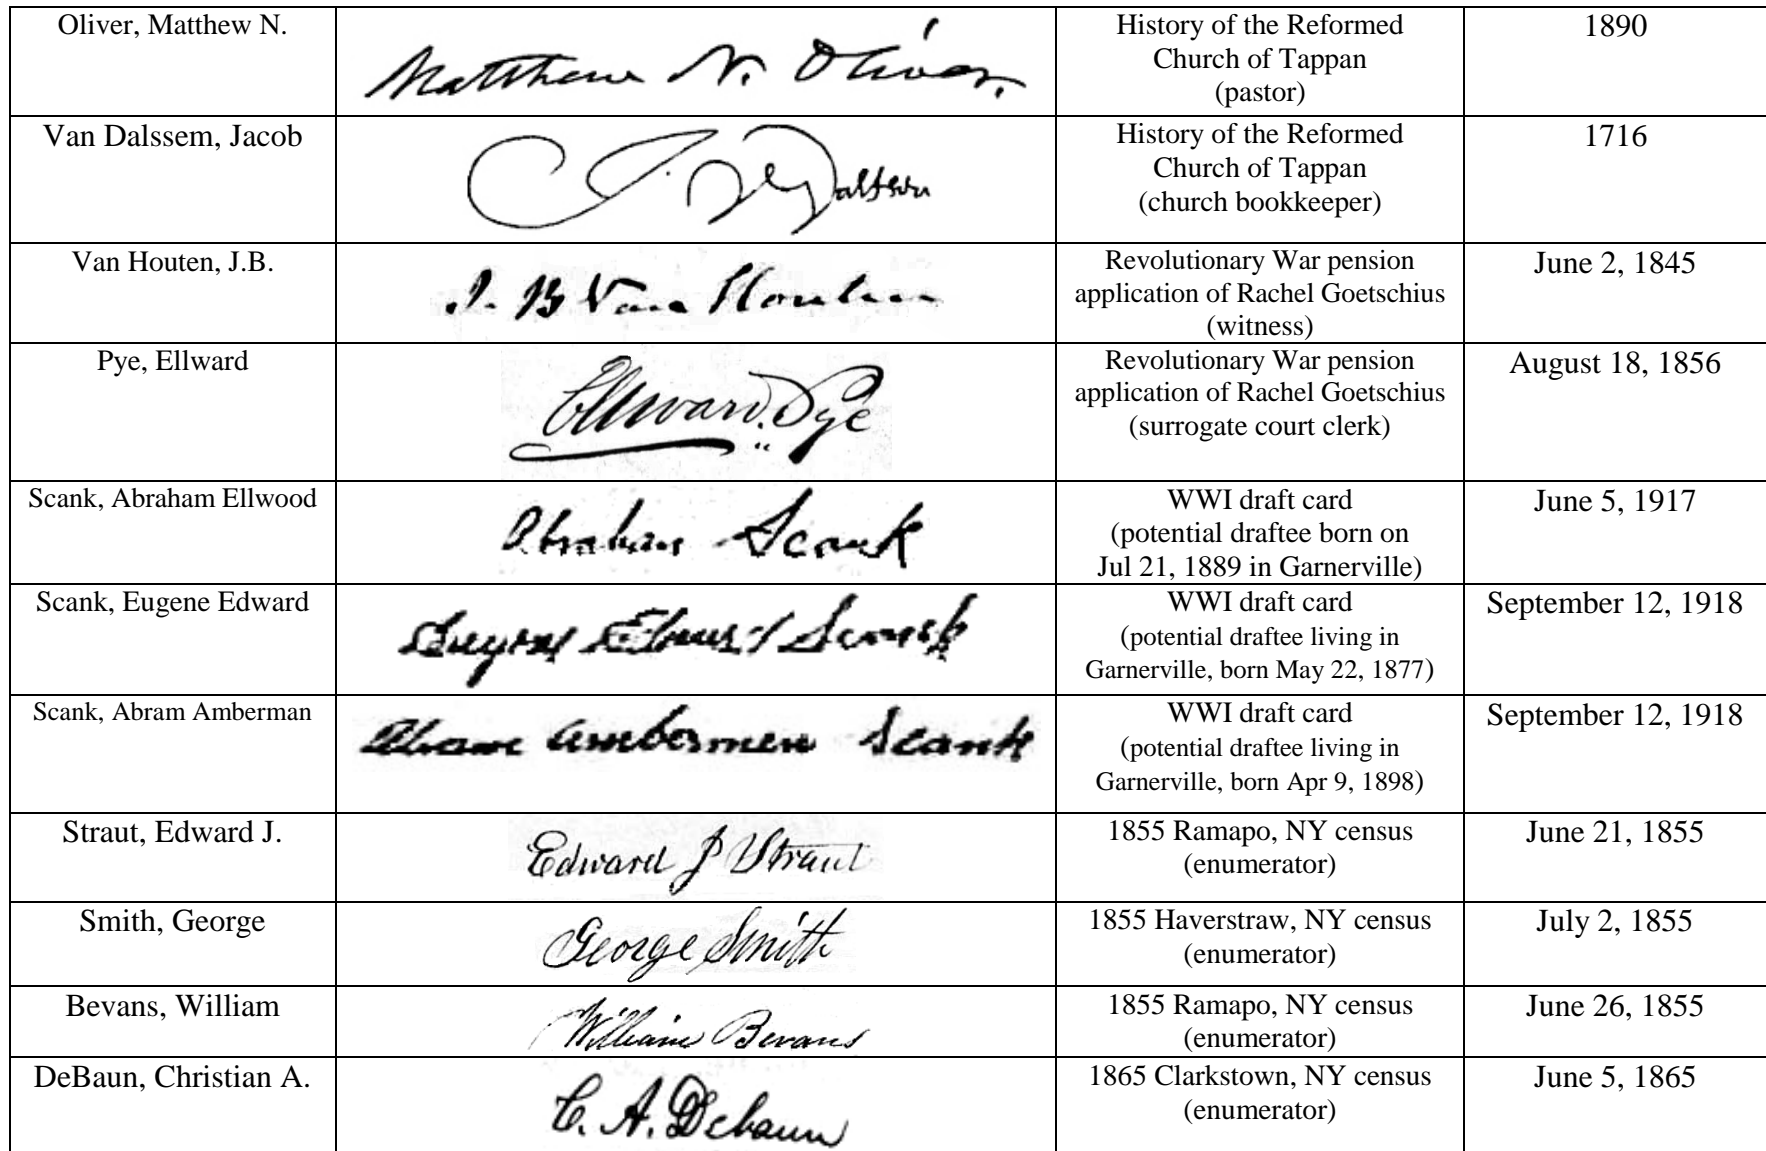 Oliver, Matthew N.
Matthew N. Oliver.
History of the Reformed
Church of Tappan
(pastor)
1890
Van Dalssem, Jacob
J. V Dalssen
History of the Reformed
Church of Tappan
(church bookkeeper)
1716
Van Houten, J.B.
J. B Van Houten
Revolutionary War pension
application of Rachel Goetschius
(witness)
June 2, 1845
Pye, Ellward
Ellward Pye
Revolutionary War pension
application of Rachel Goetschius
(surrogate court clerk)
August 18, 1856
Scank, Abraham Ellwood
Abraham Scank
WWI draft card
(potential draftee born on
Jul 21, 1889 in Garnerville)
June 5, 1917
Scank, Eugene Edward
Eugene Edward Scank
WWI draft card
(potential draftee living in
Garnerville, born May 22, 1877)
September 12, 1918
Scank, Abram Amberman
Abram Ambermen Scank
WWI draft card
(potential draftee living in
Garnerville, born Apr 9, 1898)
September 12, 1918
Straut, Edward J.
Edward J Straut
1855 Ramapo, NY census
(enumerator)
June 21, 1855
Smith, George
George Smith
1855 Haverstraw, NY census
(enumerator)
July 2, 1855
Bevans, William
William Bevans
1855 Ramapo, NY census
(enumerator)
June 26, 1855
DeBaun, Christian A.
C. A. Debaun
1865 Clarkstown, NY census
(enumerator)
June 5, 1865